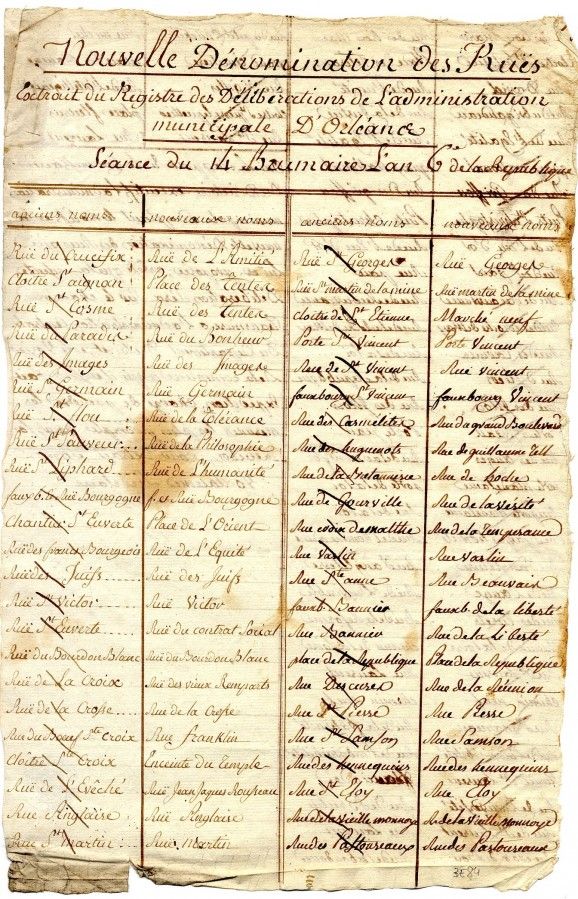 Nouvelle Dénomination des Ruës
Extrait du Registre des Délibérations de L'administration
municipale D'Orléans
Séance du 14 Brumaire L'an 6e de la République
anciens noms nouveaux noms anciens noms nouveaux noms
Ruë du Crucifix Ruë de L'Amitié Ruë St Georges Ruë Georges
Cloitre St aignan Place des Tentes Ruë St martin de la mine Ruë martin de la mine
Ruë St Cosme Ruë des Tentes cloitre de St Etienne Marché neuf
Ruë du Paradis Ruë du Bonheur Porte St Vincent Porte Vincent
Ruë des Images Ruë des Images Rue de St Vincent Rue vincent
Ruë St Germain Ruë Germain fauxbourg St Vincent fauxbourg Vincent
Ruë St flou Ruë de la Tolérance Rue des Carmelites Rue du grand Boulevard
Ruë St Sauveur Ruë de la Philosophie Rue des huguenots Rue de guillaume Tell
Ruë St Liphard Ruë de L'humanité Rue de la Bretonnerie Rue de hoche
faux b. et Ruë Bourgogne f. et Ruë Bourgogne Rue de Gourville Rue de la vérité
Chantier St Euverte Place de L'Orient Rue de malthe Rue de la Temperance
Ruë des francs Bourgeois Ruë de L'Equité Rue Vaslin Rue Vaslin
Ruë des Juifs Ruë des Juifs Rue Ste anne Rue Beauvais
Ruë St Victor Ruë Victor fauxb. Bannier fauxb. de la liberté
Ruë St Euverte Ruë du contrat Social Rue Bannier Rue de la Liberté
Ruë du Bourdon Blanc Ruë du Bourdon Blanc place de la République Place de la République
Ruë de La Croix Ruë des vieux Remparts Rue Descures Rue de la Réunion
Ruë de la Crosse Ruë de la Crosse Rue St Pierre Rue Pierre
Ruë du Boeuf Ste Croix Ruë franklin Rue St Samson Rue Samson
Cloître Ste Croix Enceinte du Temple Rue des hennequins Rue des hennequins
Ruë de L'Evêché Ruë Jean Jaques Rousseau Rue St Eloy Rue Eloy
Ruë Anglaise Ruë Anglaise Rue de la vieille monnoye R. de la Vieille Monnoye
Ruë St martin Ruë Martin Rue des Pastoureaux Rue des Pastoureaux
3E84